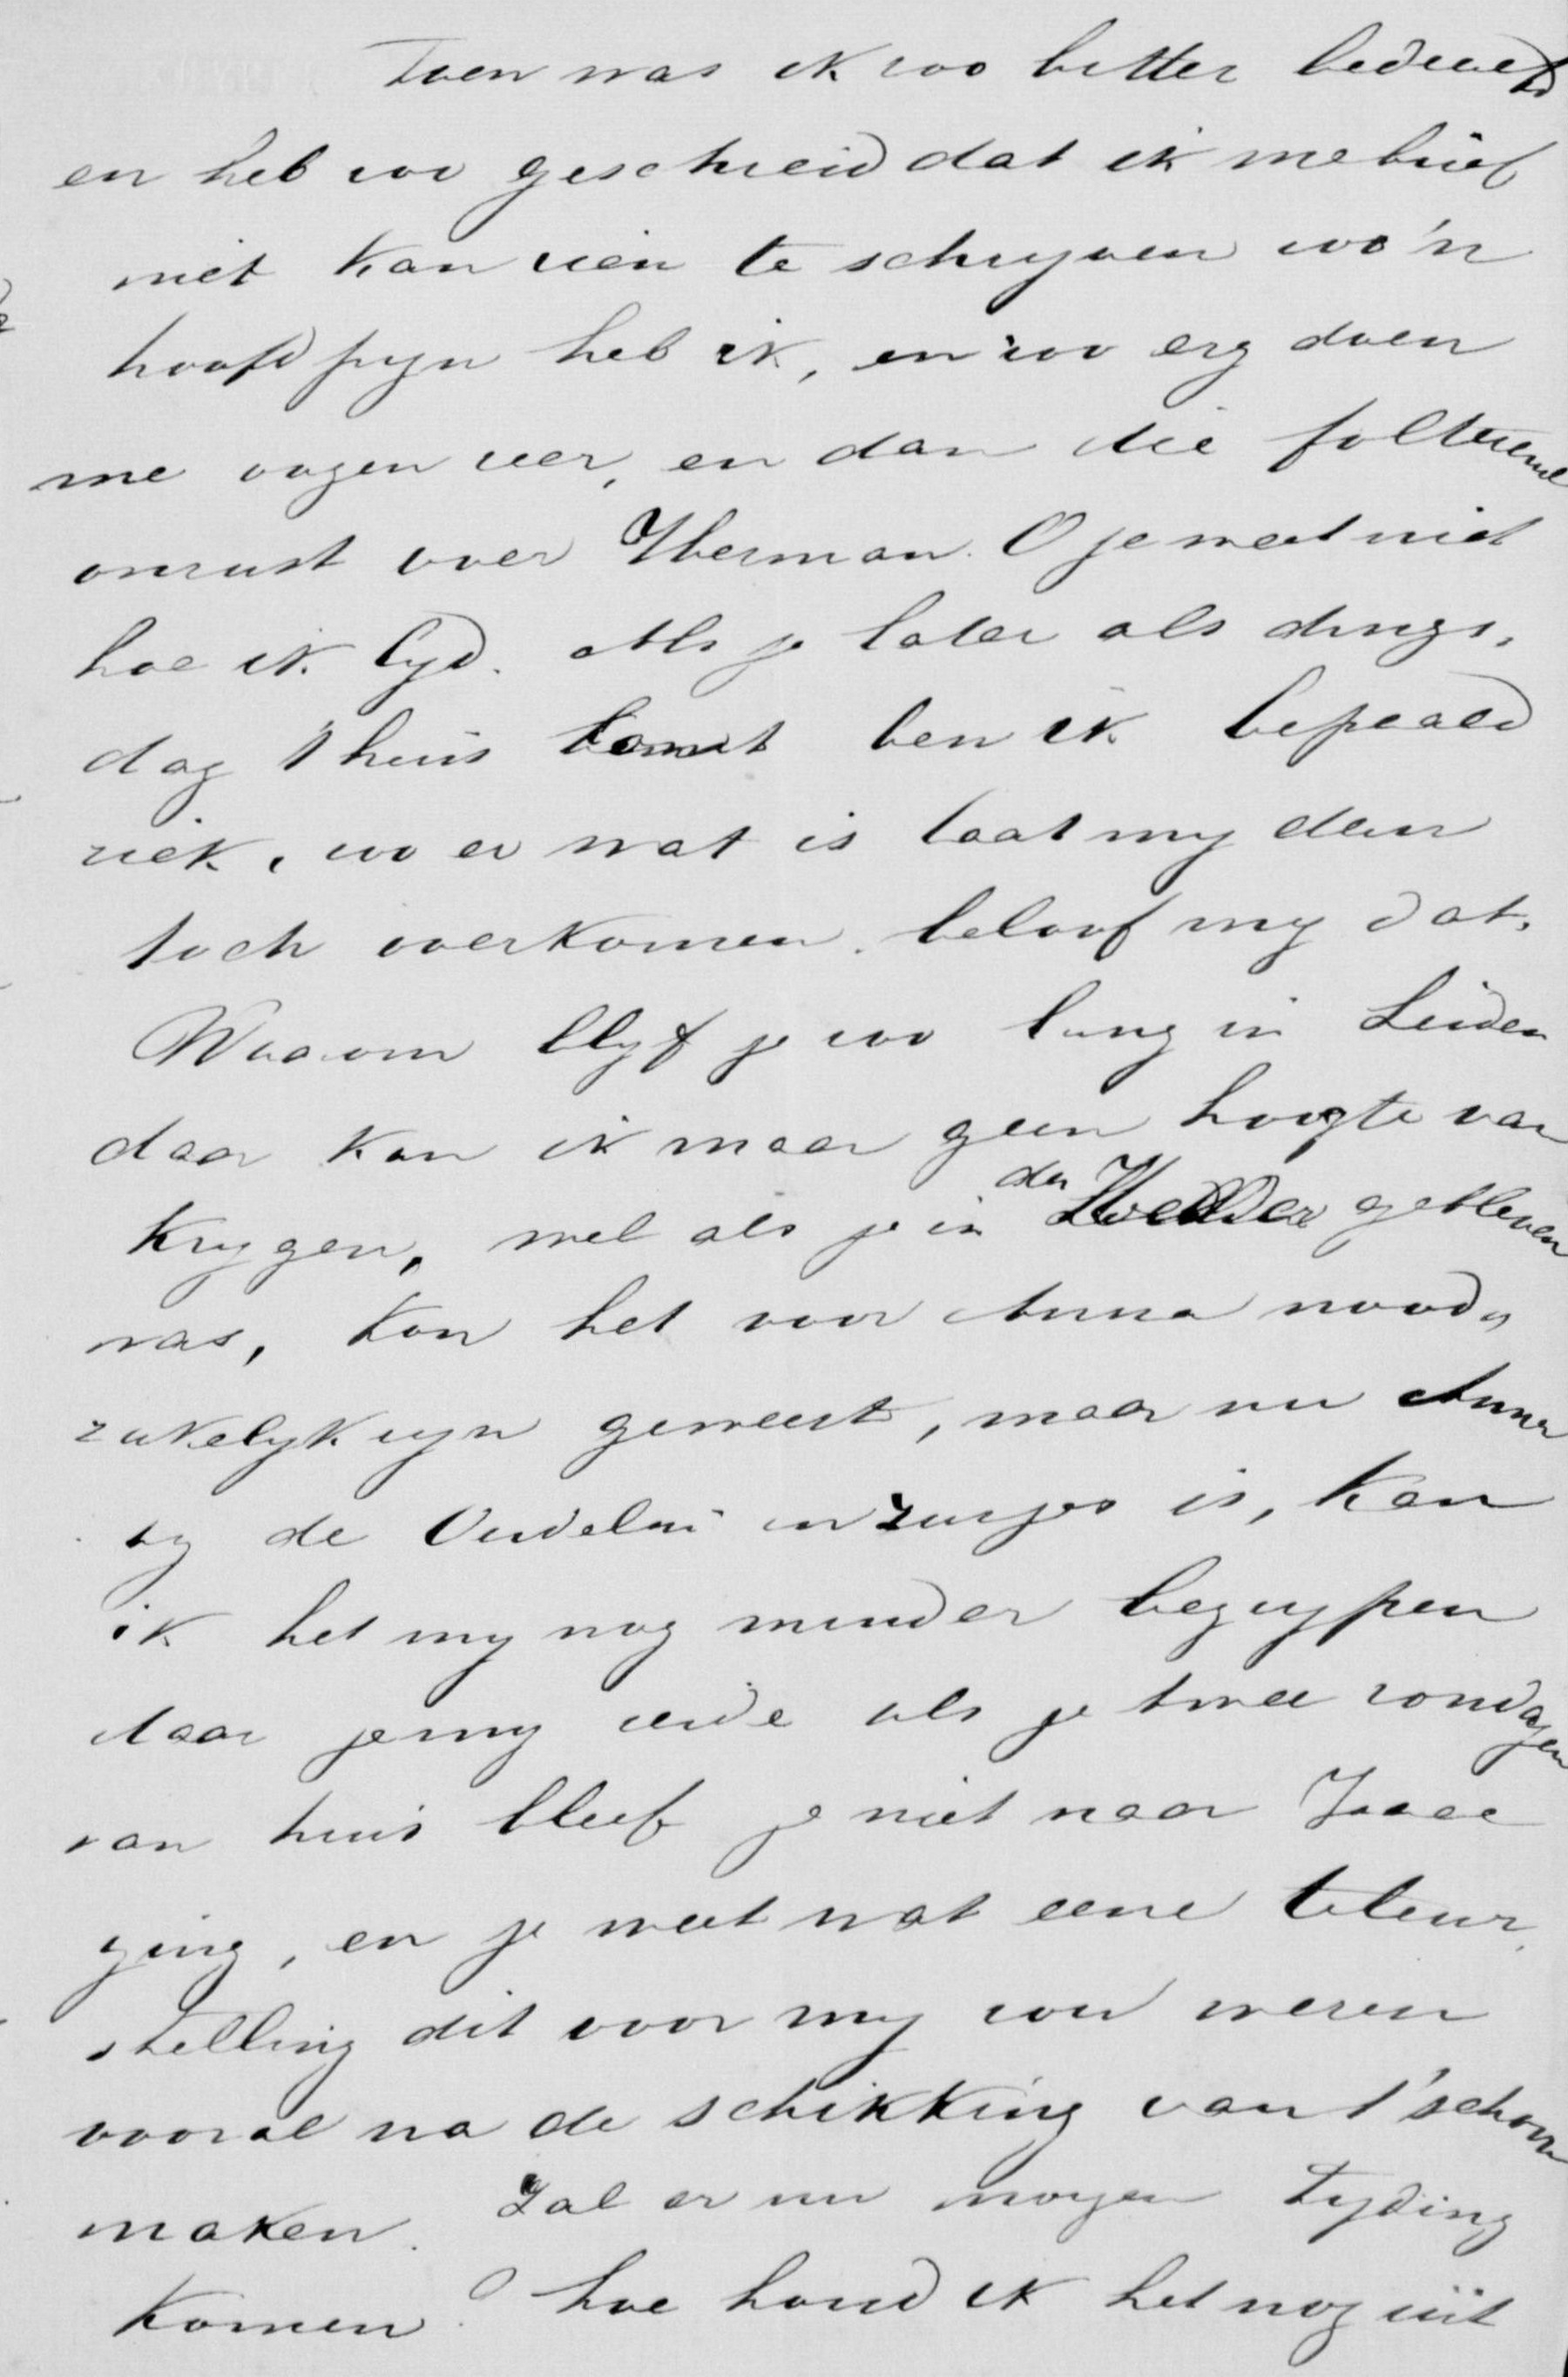 Toen was ik zoo bitter bedroefd
en heb zoo geschreid dat ik me brief
niet kan zien te schryven zo'n
hoofdpyn heb ik, en zoo erg doen
me oogen zeer, en dan die folterende
onrust over Herman. O je weet niet
hoe ik lyd. Als je later als dings,
dag thuis komt ben ik bepaald
ziek, zoo er wat is laat my dan
toch overkomen. beloof my dat.
Waarom blyf je zoo lang in Leiden
daar kan ik maar geen hoogte van
krygen, wel als je in den Helder gebleven
was, kon het voor Anna nood,
zakelyk zyn geweest, maar nu Anna
by de Oudelui en zusjes is, kan
ik het my nog minder begrypen
daar je my zeide als je twee zondagen
van huis bleef je niet naar Isaac
ging, en je weet wat eene teleur,
stelling dit voor my zou wezen
vooral na de schikking van t'schoon
maken. Zal er nu morgen tyding
komen? hoe houd ik het nog uit